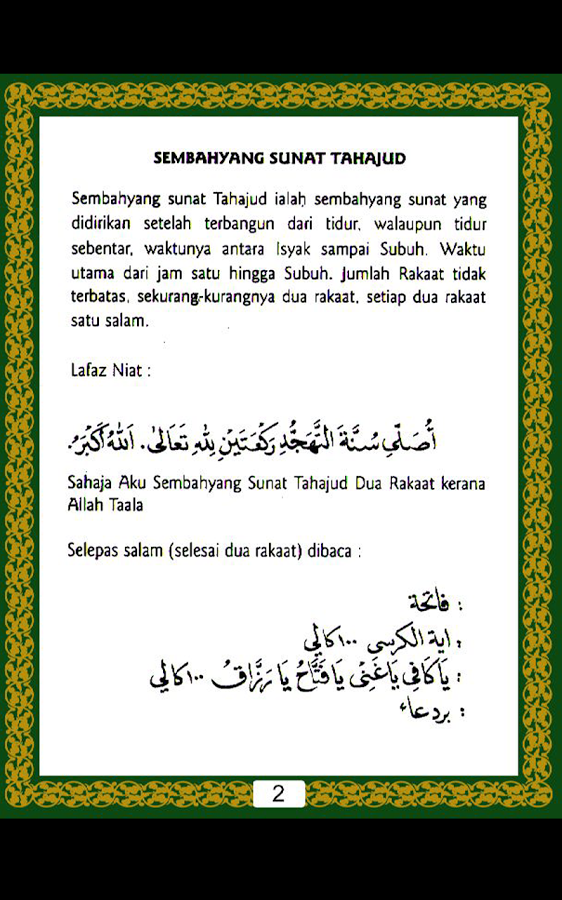 SEMBAHYANG SUNAT TAHAJUD
Sembahyang sunat Tahajud ialah sembahyang sunat yang
didirikan setelah terbangun dari tidur, walaupun tidur
sebentar, waktunya antara Isyak sampai Subuh. Waktu
utama dari jam satu hingga Subuh. Jumlah Rakaat tidak
terbatas, sekurang-kurangnya dua rakaat, setiap dua rakaat
satu salam.
Lafaz Niat :
أُصَلِّي سُنَّةَ التَّهَجُّدِ رَكْعَتَيْنِ لِلّٰهِ تَعَالَىٰ. اَللّٰهُ أَكْبَرُ.
Sahaja Aku Sembahyang Sunat Tahajud Dua Rakaat kerana
Allah Taala
Selepas salam (selesai dua rakaat) dibaca :
: فاتحة
: اية الكرسي ١٠٠ كالي
: يَا كَافِي يَا غَنِيُّ يَا فَتَّاحُ يَا رَزَّاقُ ١٠٠ كالي
: بردعاء
2